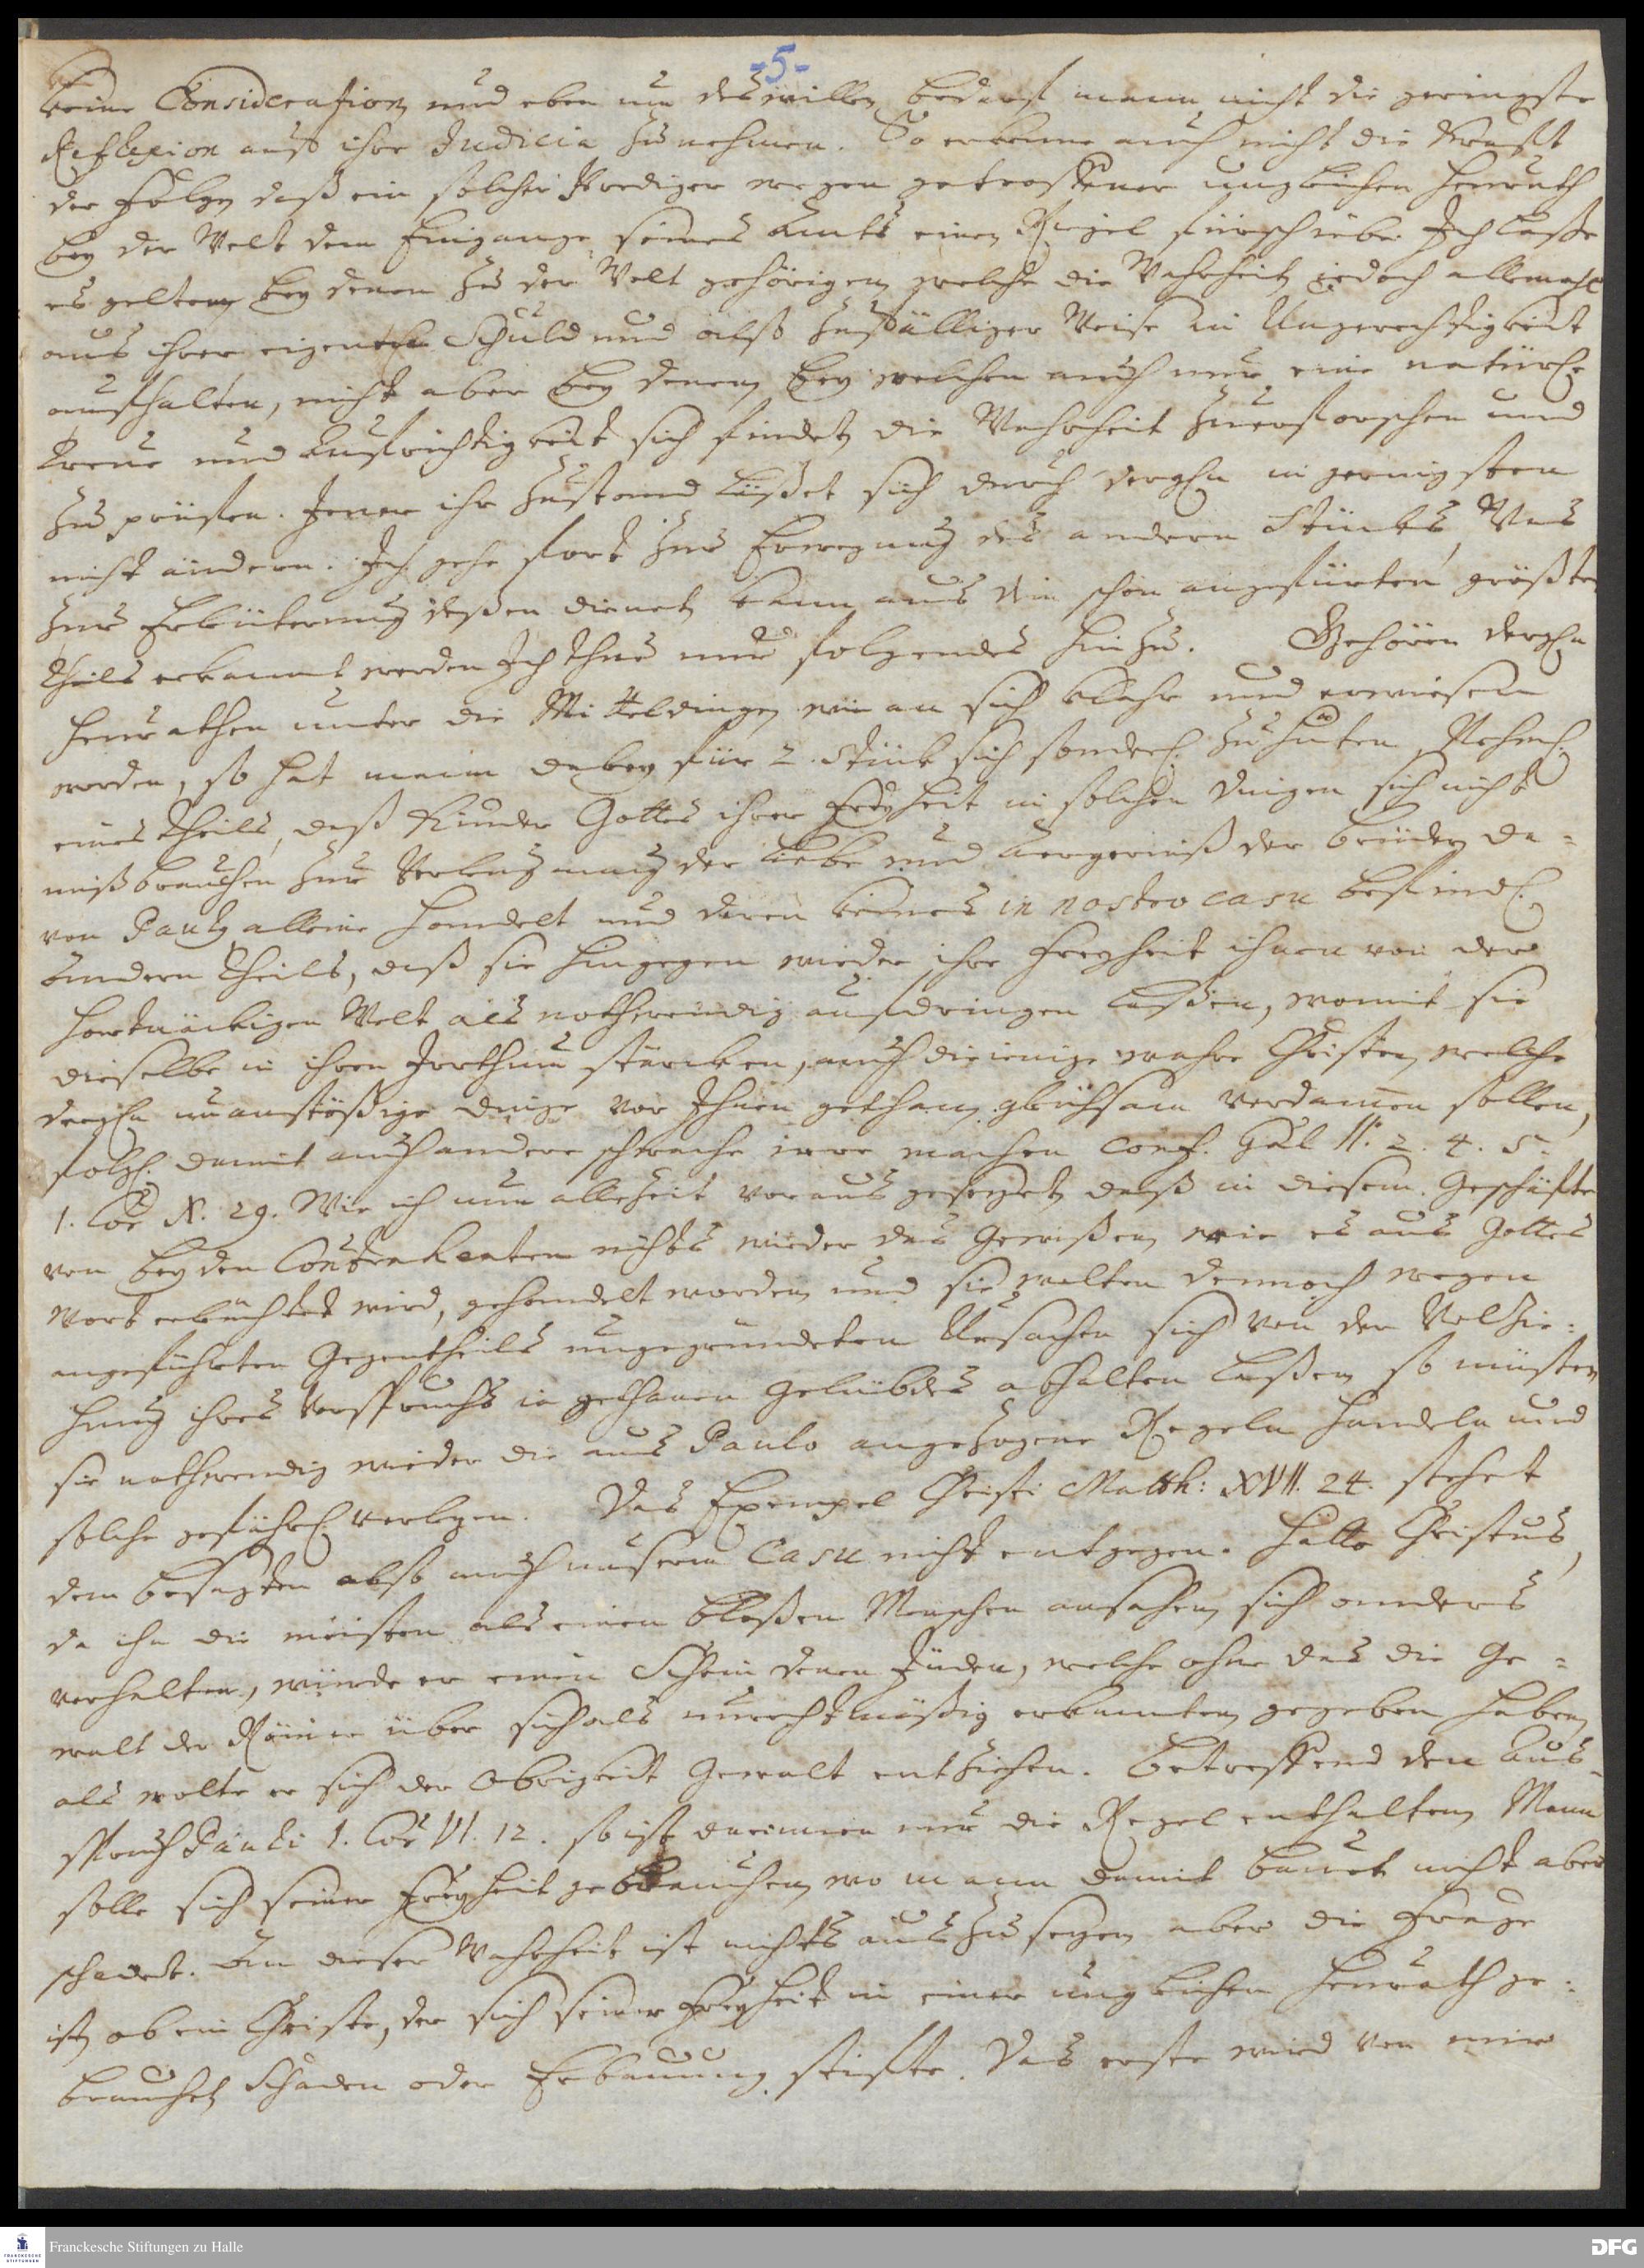 -5-
keine Consideration und eben um deswillen bedarf mann nicht die geringste
Reflexion auf ihre Judicia zu nehmen. So erkenne auch nicht die Krafft
der Folge daß ein solcher Prediger wegen getroffener ungleichen Heurath
bey der Welt dem Eingange seines Amts einen Riegel fürschiebe. Ich laße
es gelten bey denen zu der Welt gehörigen welche die Wahrheit jedoch allemahl
aus ihrer eigenen Schuld und alß zufälliger Weise in Ungerechtigkeit
aufhalten, nicht aber bey denen bey welchen auch nur eine natürl.
treue und Aufrichtigkeit sich findet die Wahrheit zuerforschen und
zu prüfen. Jener ihr zustand läßet sich durch dergln im geringsten
nicht ändern. Ich gehe fort zur Erwegung des andern Stücks, Was
zur Erläuterung deßen dienet kann aus dem schon angeführten größten
theils erkannt werden Ich thue nur folgendes hinzu. Gehören dergln
Heurathen unter die Mitteldinge wie an sich klahr und erwiesen
worden, so hat mann dabey für 2. Stück sich sonderl. zu hüten, Nehml.
eines theils, daß Kinder Gottes ihrer Freyheit in solchen Dingen sich nicht
mißbrauchen zur Verleugnung der Liebe und Aergerniß der brüder, da=
von Paulus alleine handelt und deren keines in nostro casu befindl.
andern theils, daß sie hingegen wieder ihre Freyheit ihnen von der
hartnäckigen Welt als nothwendig aufdringen laßen, womit sie
dieselbe in ihren Irrthum stärcken, auch diejenige wahre Christen welche
dergln unanstößige dinge vor Ihnen gethan gleichsam verdamen sollen,
folgl. damit auch andere schwache irre machen conf. Gal II. 2. 4. 5.
1. Cor X. 29. Wie ich nun allezeit voraus gesezet daß in diesem Geschäfte
von beyden Contrahenten nichts wieder das Gewißen wie es aus Gottes
Wort erleuchtet wird, gehandelt worden und sie wolten dennoch wegen
angeführten Gegentheils ungegründeten Ursachen sich von der Volzie=
hung ihres Verspruchs in gethanen Gelübdes abhalten laßen so müsten
sie nothwendig wieder die aus Paulo angezogene Regeln handeln und
solche gefährl. verlezen. Das Exempel Christi Matth: XVII. 24. stehet
dem besagten also auch unserm Casu nicht entgegen. Hätte Christus,
da ihn die meisten als einen bloßen Menschen ansahen sich anders
verhalten, würde er einen Schein denen Jüden, welche ohne das die Ge=
walt der Römer über sich als unrechtmäßig erkannten gegeben haben
als wolte er sich der Obrigkeit Gewalt entziehen. Betreffend den Aus=
spruch Pauli 1. Cor VI. 12. so ist darinnen nur die Regel enthalten Mann
solle sich seiner Freyheit gebrauchen, wo mann damit bauet nicht aber
schadet. An dieser Wahrheit ist nichts auszusezen aber die Frage
ist ob ein Christe, der sich seiner Freyheit in einer ungleichen Heurath ge=
brauchet Schaden oder Erbauung stifte. Das erste wird von mir
Franckesche Stiftungen zu Halle
DFG